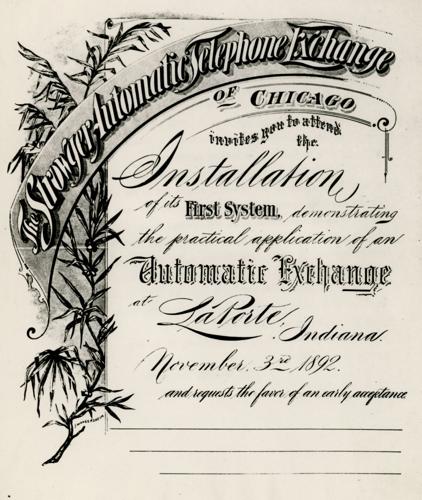 The Strowger Automatic Telephone Exchange
OF CHICAGO
invites you to attend
the
Installation,
of its First System, demonstrating
the practical application of an
Automatic Exchange
at
LaPorte, Indiana.
November 3rd 1892.
and requests the favor of an early acceptance